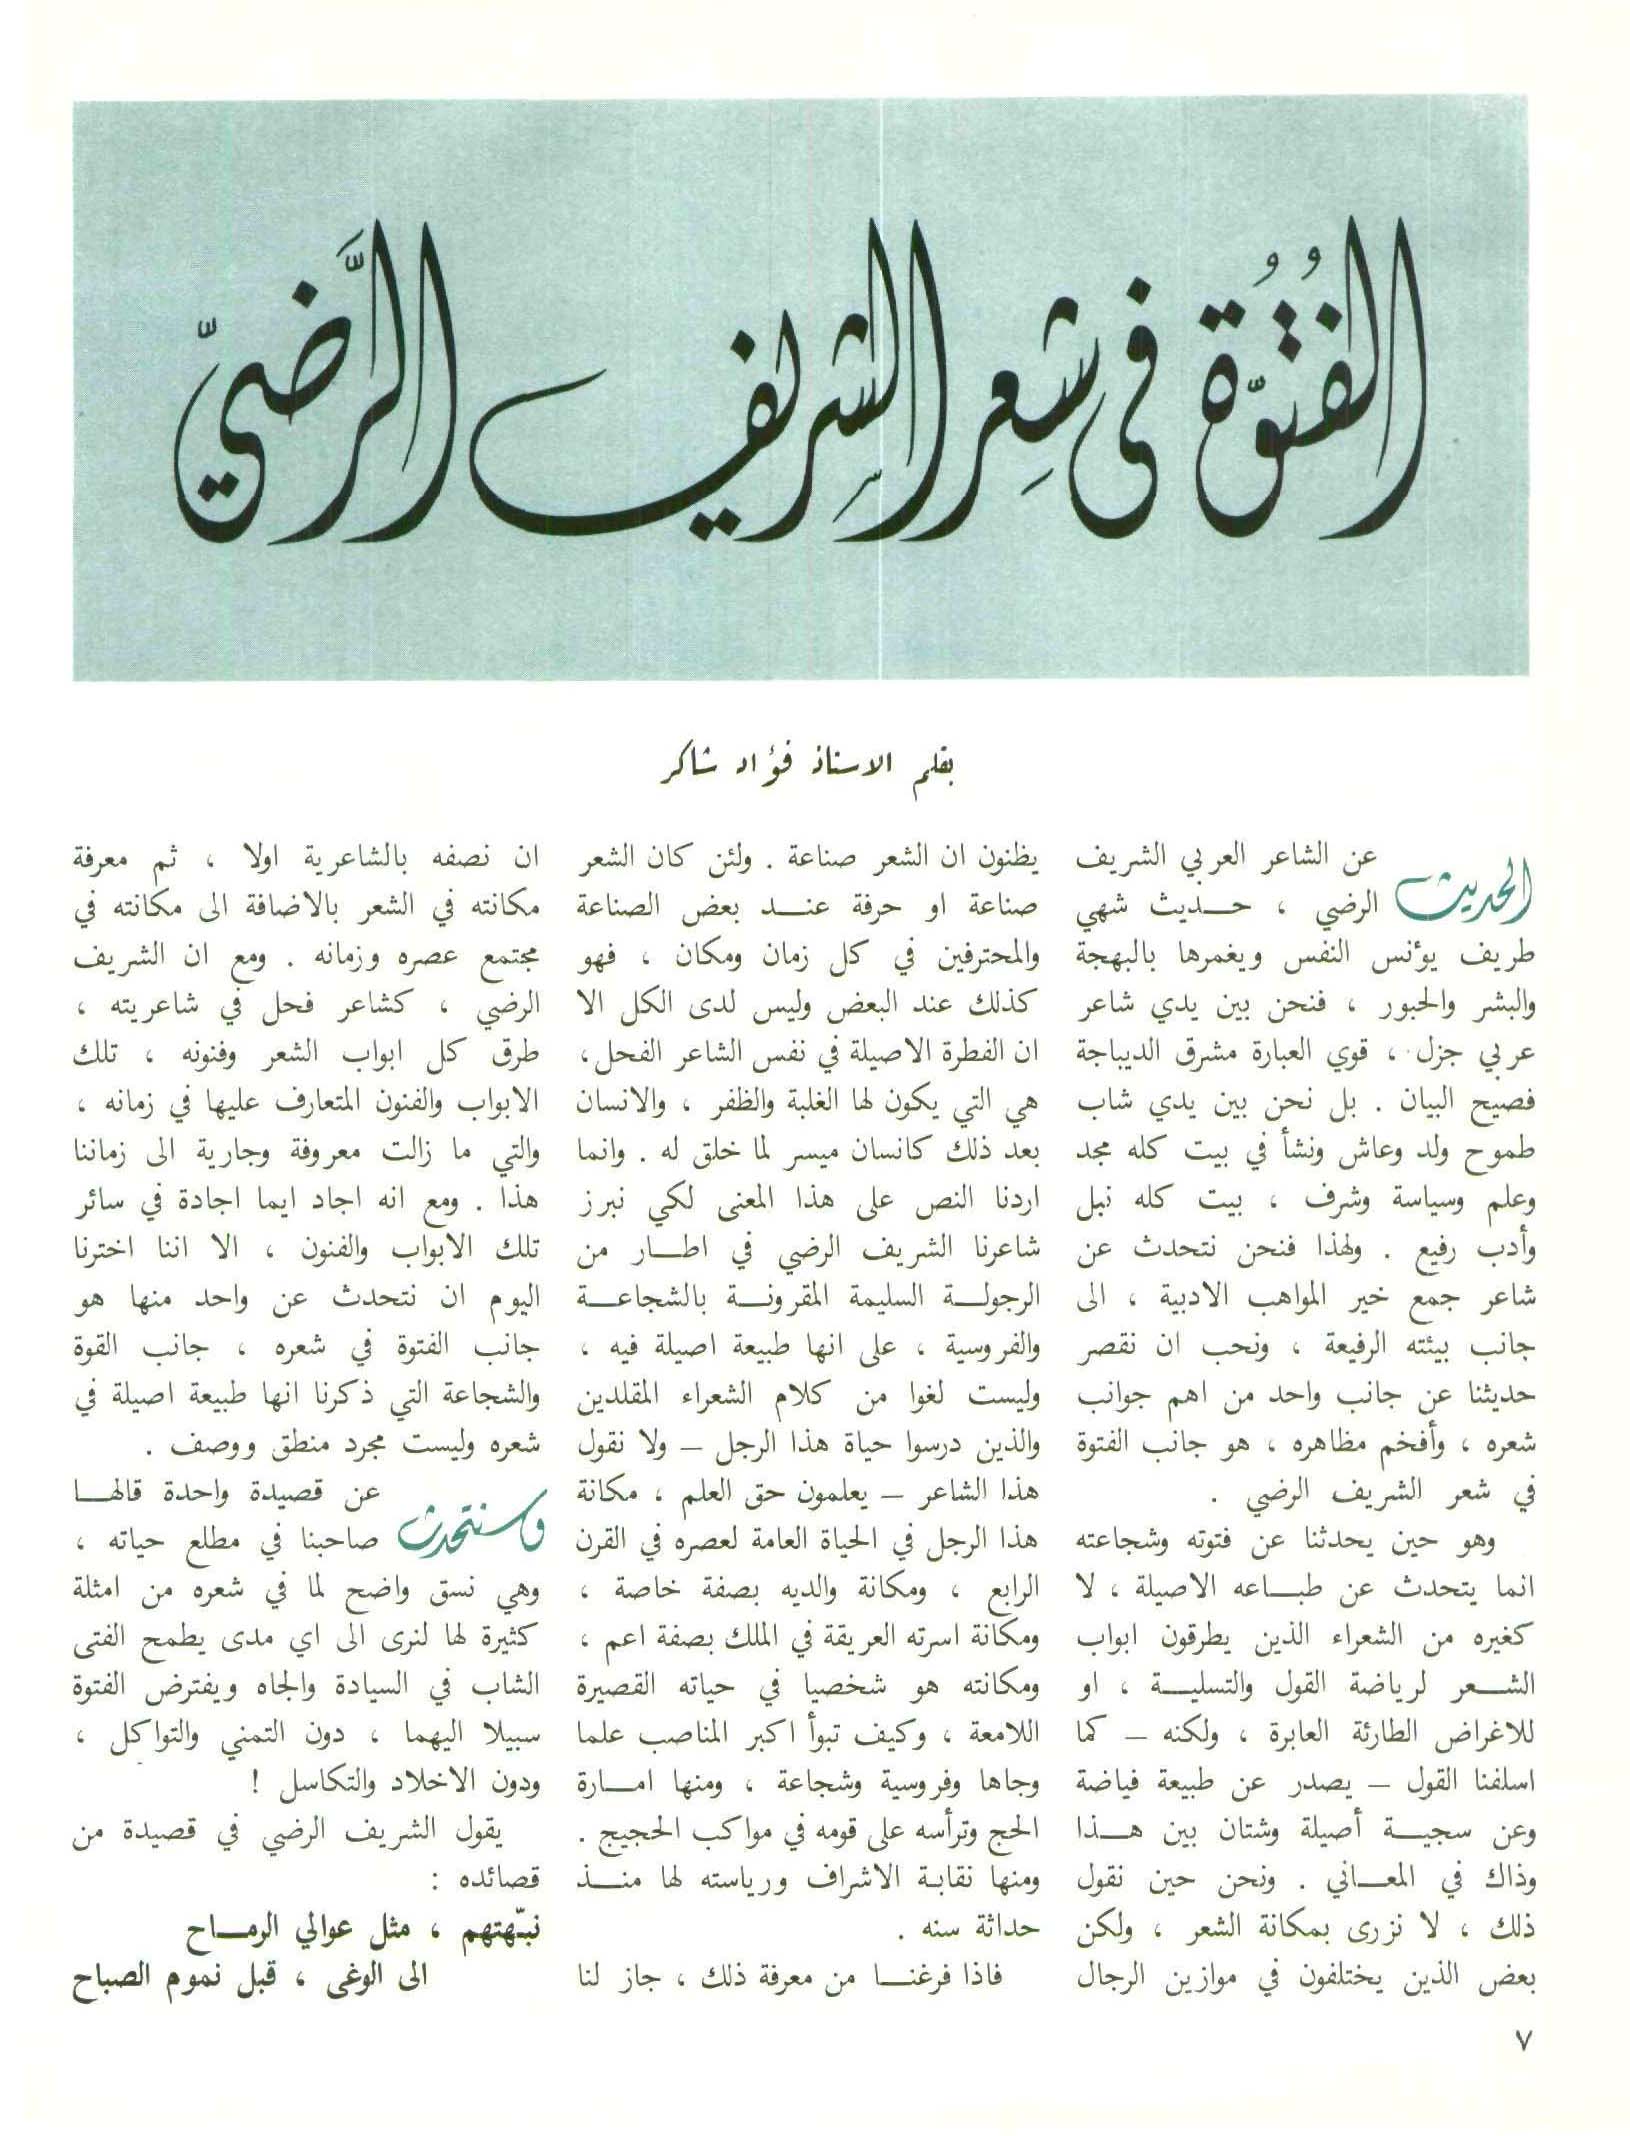 الفُتُوّة في شِعر الشِريف الرَّضيّ
بقلم الاستاذ فؤاد شاكر
الحديث عن الشاعر العربي الشريف
الرضي ، حـــديث شهي
طريف يؤنس النفس ويغمرها بالبهجة
والبشر والحبور ، فنحن بين يدي شاعر
عربي جزل ، قوي العبارة مشرق الديباجة
فصيح البيان . بل نحن بين يدي شاب
طموح ولد وعاش ونشأ في بيت كله مجد
وعلم وسياسة وشرف ، بيت كله نبل
وأدب رفيع . ولهذا فنحن نتحدث عن
شاعر جمع خير المواهب الادبية ، الى
جانب بيئته الرفيعة ، ونحب ان نقصر
حديثنا عن جانب واحد من اهم جوانب
شعره ، وأفخم مظاهره ، هو جانب الفتوة
في شعر الشريف الرضي .
وهو حين يحدثنا عن فتوته وشجاعته
انما يتحدث عن طبـــاعه الاصيلة ، لا
كغيره من الشعراء الذين يطرقون ابواب
الشـــعر لرياضة القول والتسليـــة ، او
للاغراض الطارئة العابرة ، ولكنه – كما
اسلفنا القول – يصدر عن طبيعة فياضة
وعن سجيـــة أصيلة وشتان بين هـــذا
وذاك في المعـــاني . ونحن حين نقول
ذلك ، لا نزرى بمكانة الشعر ، ولكن
بعض الذين يختلفون في موازين الرجال
يظنون ان الشعر صناعة . ولئن كان الشعر
صناعة او حرفة عنـــد بعض الصناعة
والمحترفين في كل زمان ومكان ، فهو
كذلك عند البعض وليس لدى الكل الا
ان الفطرة الاصيلة في نفس الشاعر الفحل،
هي التي يكون لها الغلبة والظفر ، والانسان
بعد ذلك كانسان ميسر لما خلق له . وانما
اردنا النص على هذا المعنى لكي نبرز
شاعرنا الشريف الرضي في اطـــار من
الرجولـــة السليمة المقرونـــة بالشجاعـــة
والفروسية ، على انها طبيعة اصيلة فيه ،
وليست لغوا من كلام الشعراء المقلدين
والذين درسوا حياة هذا الرجل – ولا نقول
هذا الشاعر – يعلمون حق العلم ، مكانة
هذا الرجل في الحياة العامة لعصره في القرن
الرابع ، ومكانة والديه بصفة خاصة ،
ومكانة اسرته العريقة في الملك بصفة اعم ،
ومكانته هو شخصيا في حياته القصيرة
اللامعة ، وكيف تبوأ اكبر المناصب علما
وجاها وفروسية وشجاعة ، ومنها امـــارة
الحج وترأسه على قومه في مواكب الحجيج .
ومنها نقابة الاشراف ورياسته لها منـــذ
حداثة سنه .
فاذا فرغنـــا من معرفة ذلك ، جاز لنا
ان نصفه بالشاعرية اولا ، ثم معرفة
مكانته في الشعر بالاضافة الى مكانته في
مجتمع عصره وزمانه . ومع ان الشريف
الرضي ، كشاعر فحل في شاعريته ،
طرق كل ابواب الشعر وفنونه ، تلك
الابواب والفنون المتعارف عليها في زمانه ،
والتي ما زالت معروفة وجارية الى زماننا
هذا . ومع انه اجاد ايما اجادة في سائر
تلك الابواب والفنون ، الا اننا اخترنا
اليوم ان نتحدث عن واحد منها هو
جانب الفتوة في شعره ، جانب القوة
والشجاعة التي ذكرنا انها طبيعة اصيلة في
شعره وليست مجرد منطق ووصف .
وسنتحدث عن قصيدة واحدة قالهـــا
صاحبنا في مطلع حياته ،
وهي نسق واضح لما في شعره من امثلة
كثيرة لها لنرى الى اي مدى يطمح الفتى
الشاب في السيادة والجاه ويفترض الفتوة
سبيلا اليهما ، دون التمني والتواكل ،
ودون الاخلاد والتكاسل !
يقول الشريف الرضي في قصيدة من
قصائده :
نبّهتهم ، مثل عوالي الرمـــاح
الى الوغى ، قبل نموم الصباح
٧